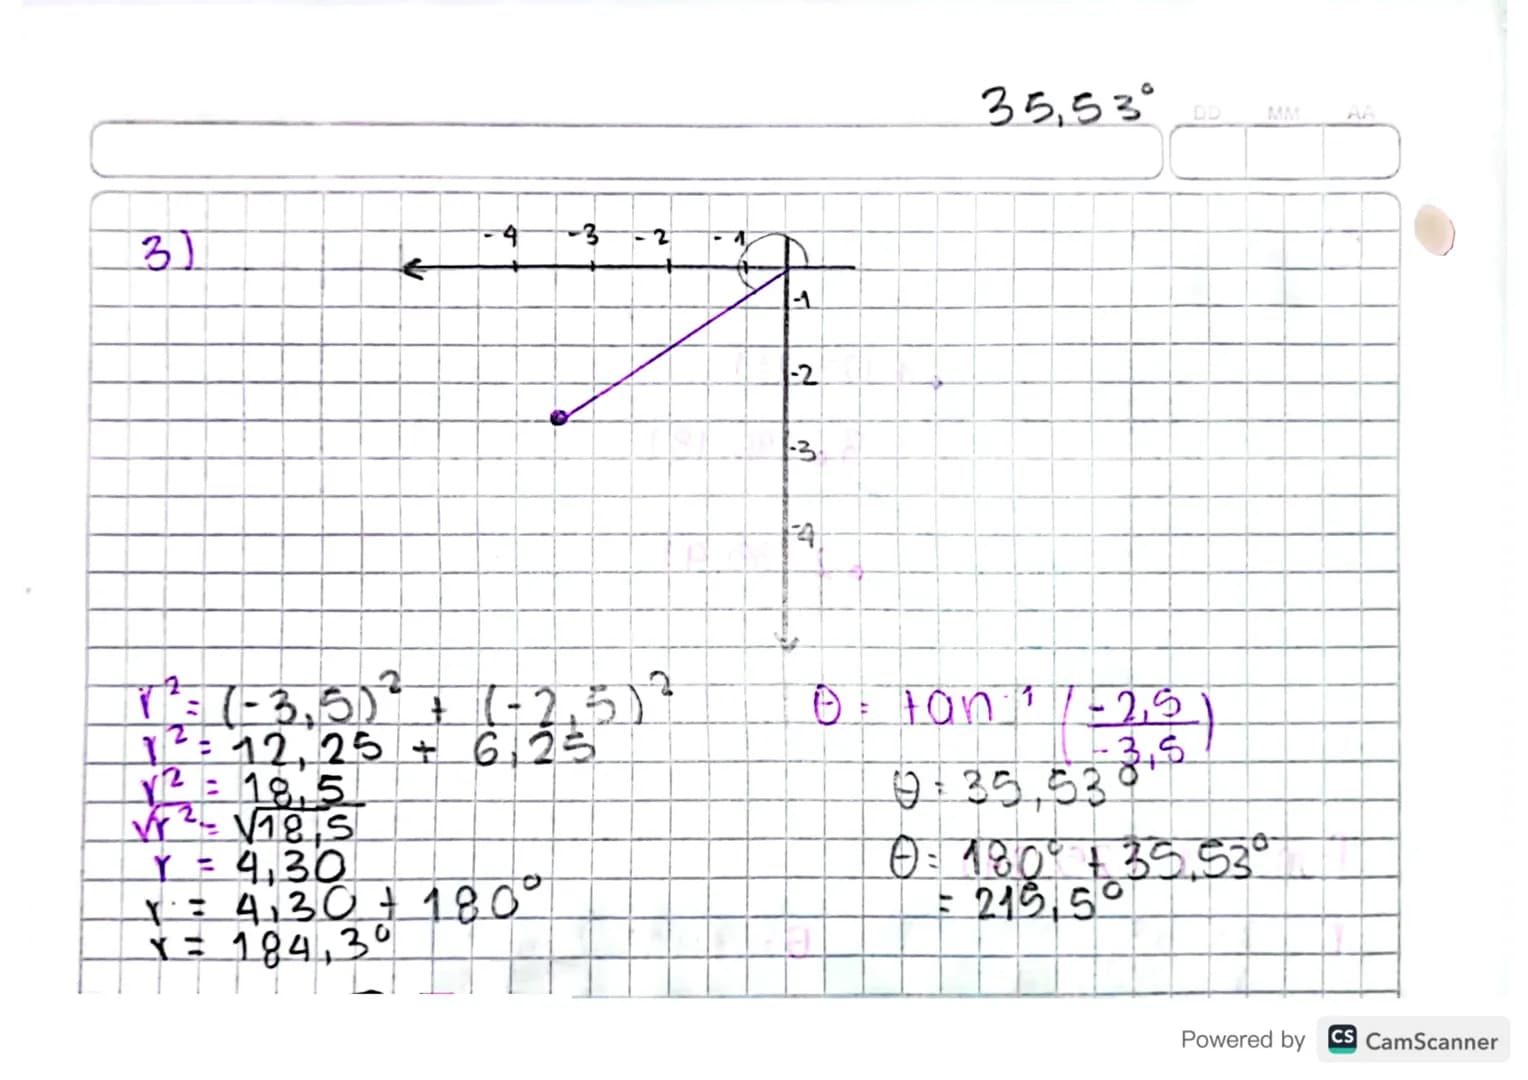 35,53°
DD MM AA
3)
-4 -3 -2 -1
-1
-2
-3
-4
r² = (-3,5)² + (-2,5)²
r² = 12,25 + 6,25
r² = 18,5
√r² = √18,5
r = 4,30
r = 4,30 + 180°
r = 184,3°
θ = tan⁻¹ (-2,5/-3,5)
θ = 35,53°
θ = 180° + 35,53°
= 215,5°
Powered by CS CamScanner